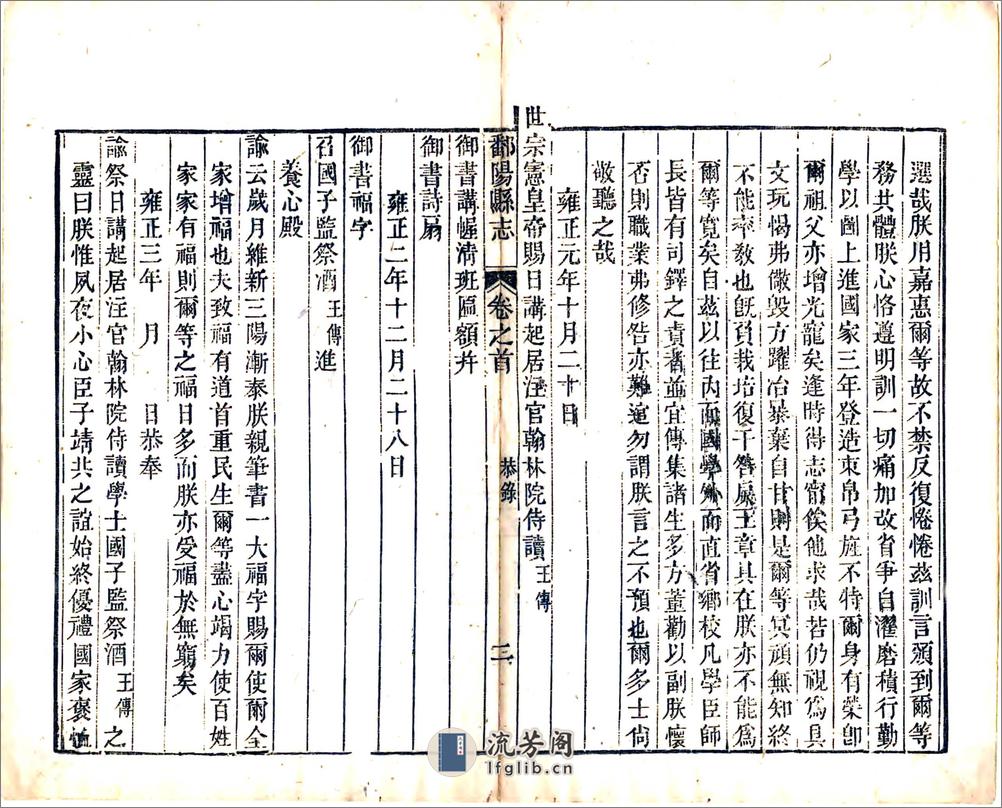 選哉朕用嘉惠爾等故不禁反復惓惓茲訓言頒到爾等
務共體朕心恪遵明訓一切痛加改省爭自濯磨積行勤
學以圖上進國家三年登造束帛弓旌不特爾身有榮卽
爾祖父亦增光寵矣逢時得志寧俟他求哉若仍視為具
文玩愒弗儆毀方躍冶暴棄自甘則是爾等冥頑無知終
不能率敎也旣負栽培復干咎戾王章具在朕亦不能為
爾等寬矣自茲以往內而國學外而直省鄉校凡學臣師
長皆有司鐸之責者並宜傳集諸生多方董勸以副朕懷
否則職業弗修咎亦難逭勿謂朕言之不預也爾多士尙
敬聽之哉
雍正元年十月二十日
世宗憲皇帝賜日講起居注官翰林院侍讀王傳
鄱陽縣志 卷之首 恭錄 三
御書講幄淸班匾額幷
御書詩扇
雍正二年十二月二十八日
御書福字
召國子監祭酒王傳進
養心殿
諭云歲月維新三陽漸泰朕親筆書一大福字賜爾使爾全
家增福也夫致福有道首重民生爾等盡心竭力使百姓
家家有福則爾等之福日多而朕亦受福於無窮矣
雍正三年 月 日恭奉
諭祭日講起居注官翰林院侍讀學士國子監祭酒王傳之
靈曰朕惟夙夜小心臣子靖共之誼始終優禮國家褒卹
流芳阁
lfglib.cn